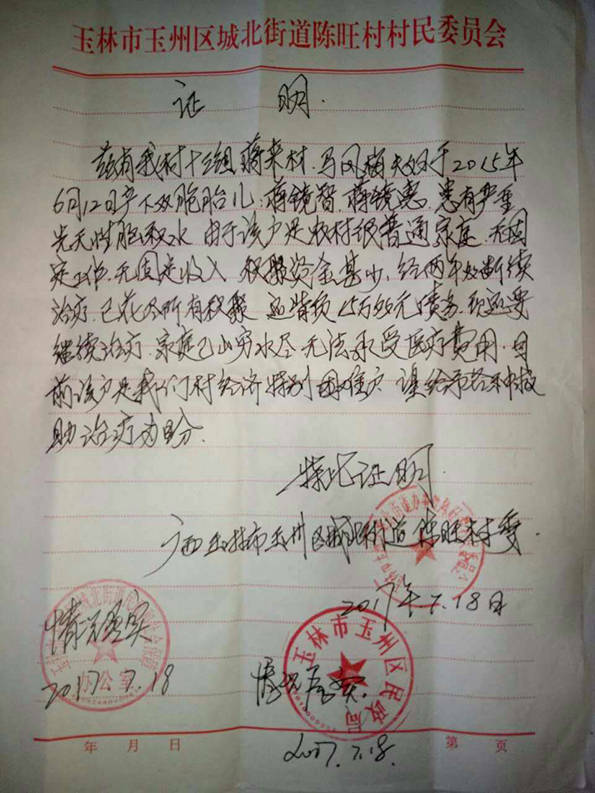 玉林市玉州区城北街道陈旺村村民委员会
证 明.
兹有我村十三组蒋荣材、马凤梅夫妇于2015年
6月12日产下双胞胎儿:蒋镜智、蒋镜惠,患有严重
先天性脑积水 由于该户是农村很普通家庭 无固
定工作 无固定收入 积聚资金甚少,经两年如断续
治疗,已花尽所有积聚 还背债15万余元债务,现还要
继续治疗 家庭已山穷水尽 无法承受医疗费用,目
前该户是我们村经济特别困难户 谨给予 救
助治疗为盼.
特此证明.
广西玉林市玉州区城北街道陈旺村委.
2017年7.18日
情况属实
2017.7.18
办公室
玉林市玉州区民政局
情况属实.
2017.7.18.
年 月 日
第 页